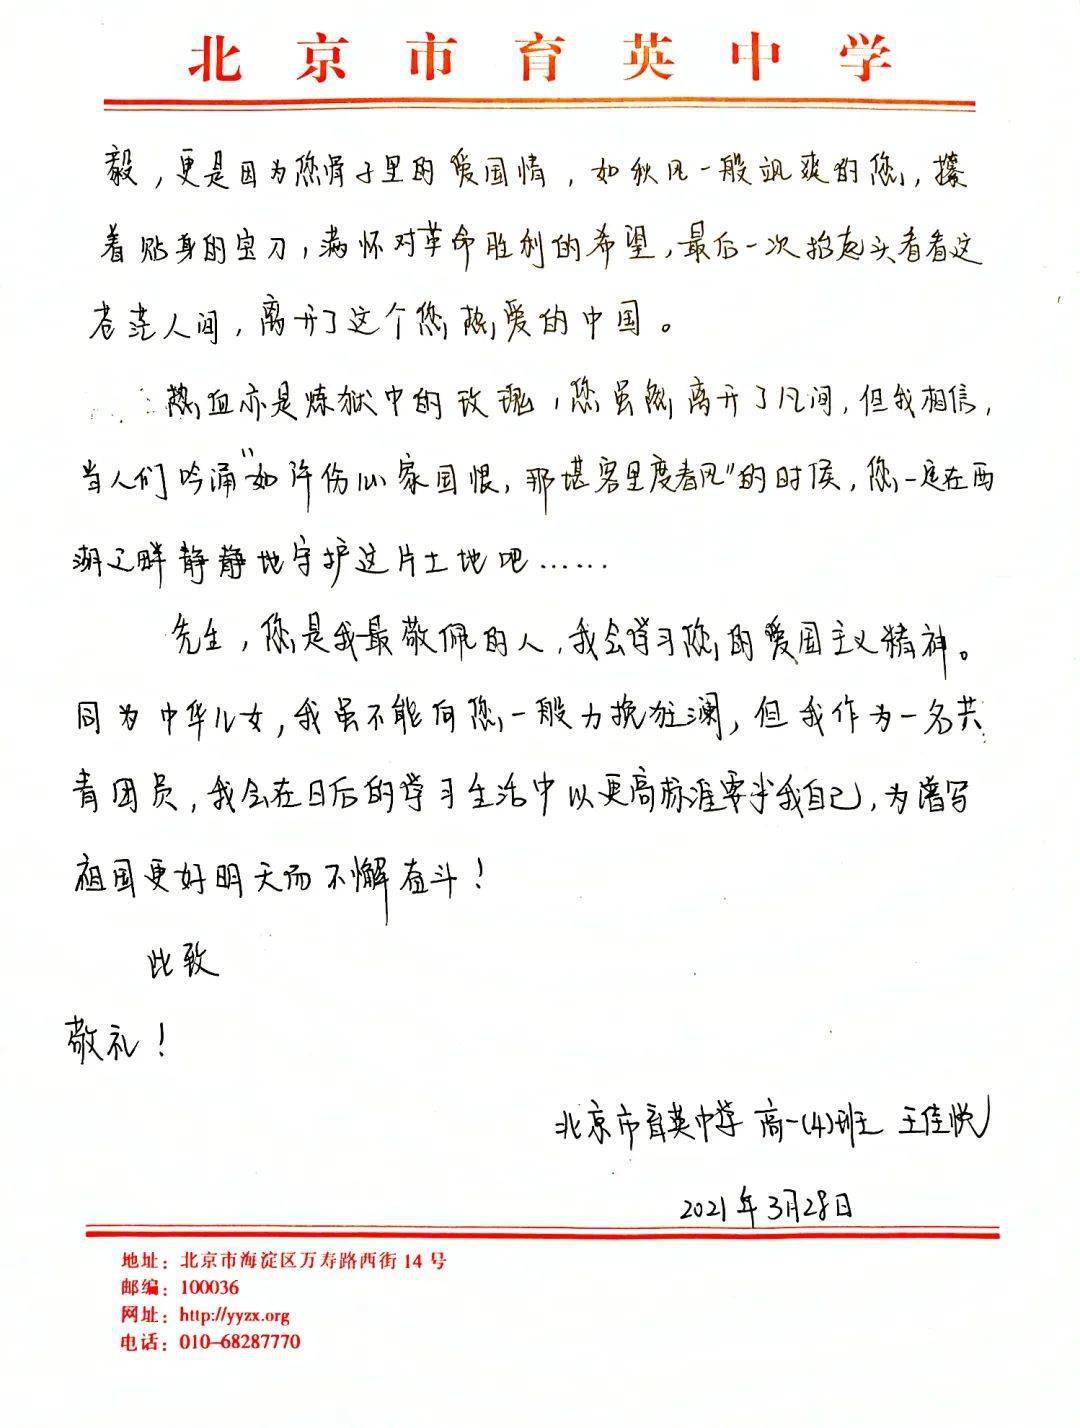 北京市育英中学
毅，更是因为您骨子里的爱国情，如秋风一般飒爽的您，攥
着贴身的宝刀，满怀对革命胜利的希望，最后一次抬起头看看这
苍茫人间，离开了这个您热爱的中国。
热血亦是炼狱中的玫瑰，您虽然离开了凡间，但我相信，
当人们吟诵“如许伤心家国恨，那堪客里度春风”的时候，您一定在西
湖之畔静静地守护这片土地吧……
先生，您是我最敬佩的人，我会学习您的爱国主义精神。
同为中华儿女，我虽不能向您一般力挽狂澜，但我作为一名共
青团员，我会在日后的学习生活中以更高标准要求我自己，为谱写
祖国更好明天而不懈奋斗！
此致
敬礼！
北京市育英中学 高一(4)班 王佳悦
2021年3月28日
地址：北京市海淀区万寿路西街14号
邮编：100036
网址：http://yyzx.org
电话：010-68287770